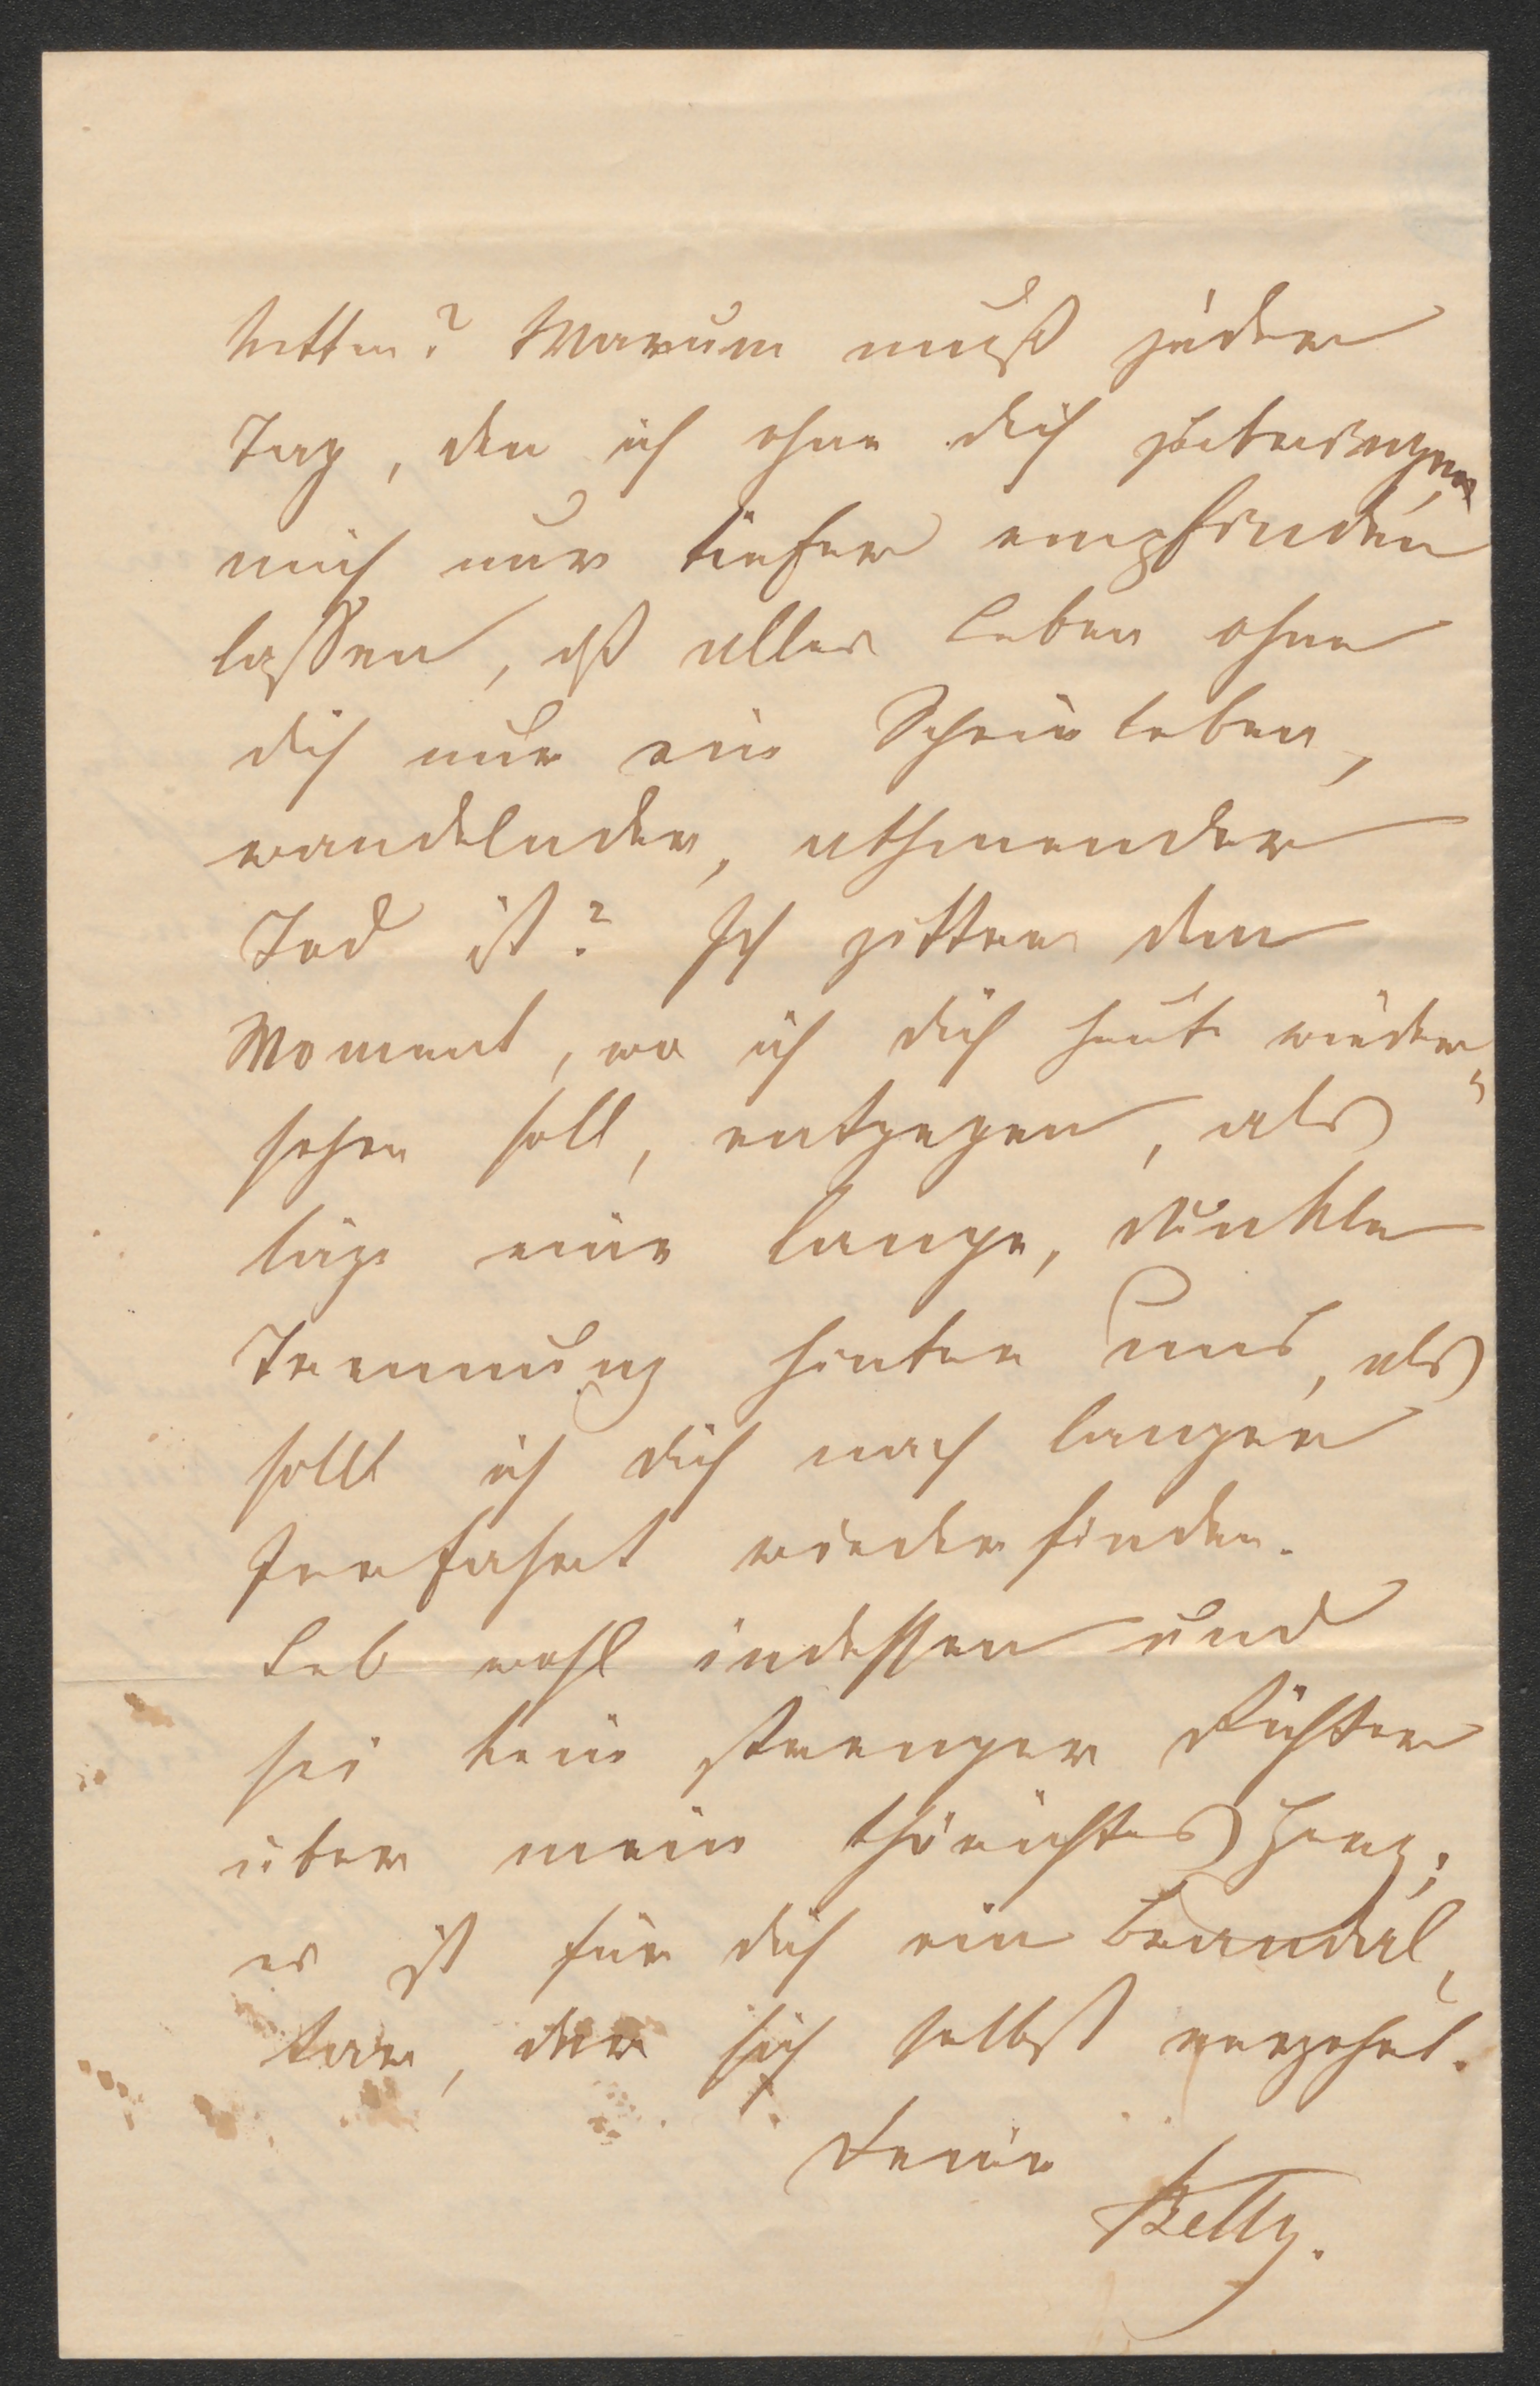 treten? Warum muß jeder
Tag, den ich ohne dich zubringen
mich nur tiefer empfinden
lassen, daß alles Leben ohne
dich nur ein Scheinleben,
wandelnder, athmender
Tod ist? Ich zittre dem
Moment, wo ich dich heute wieder-
sehen soll, entgegen, als
läge eine lange, dunkle
Trennung hinter uns, als
sollt ich dich nach langer
Irrfahrt wiederfinden.
Leb wohl indessen und
sei kein strenger Richter
über mein thörichtes Herz;
es ist für dich ein Brandal,
tar, der sich selbst verzehrt.
Deine
Betty.